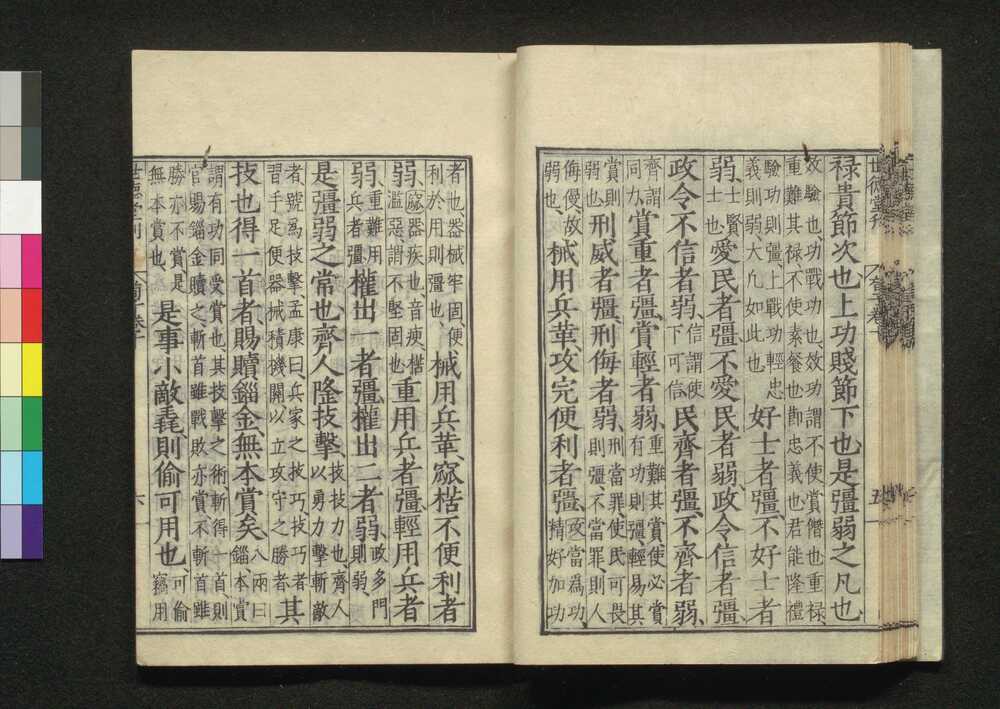 禄貴節次也上功賤節下也是彊弱之凡也
效驗也功戰功也效功謂不使賞僭也重禄
重難其禄不使素餐也節忠義也君能隆禮
驗功則彊上戰功輕忠
義則弱大凡如此也
好士者彊不好士者
弱士賢士也愛民者彊不愛民者弱政令信者彊
政令不信者弱信謂使下可信民齊者彊不齊者弱
齊謂同力賞重者彊賞輕者弱重難其賞使必賞有功則彊輕易其
賞則弱也刑威者彊刑侮者弱刑當罪使民可畏則彊不當罪則人
侮慢故弱也械用兵革攻完便利者彊攻當為功功精好加功
世德堂刊
五
者也器械牢固便利於用則彊也械用兵革窳楛不便利者
弱窳器疾也音庾楛濫惡謂不堅固也重用兵者彊輕用兵者
弱重難用兵者彊權出一者彊權出二者弱政多門則弱
是彊弱之常也齊人隆技擊技技力也齊人以勇力擊斬敵
者號爲技擊孟康曰兵家之技巧技巧者
習手足便器械積機關以立攻守之勝者
其
技也得一首者賜贖錙金無本賞矣八兩曰錙本賞
謂有功同受賞也其技擊之術斬得一首則
官賜錙金贖之斬首雖戰敗亦賞不斬首雖
勝亦不賞是無本賞也是事小敵毳則偷可用也可偷竊用
六